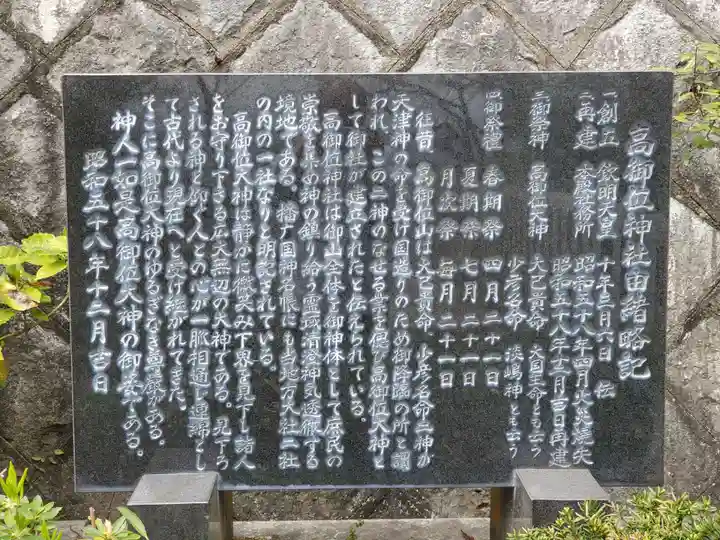 高御位神社由緒略記
一創立 欽明天皇 十年三月六日 伝
二再建 本殿社務所 昭和五十八年四月火災焼失
昭和五十八年十二月吉日再建
三御祭神 高御位大神 大己貴命 大国主命とも云う
少彦名命 淡嶋神とも云う
四御祭禮 春期祭 四月二十一日
夏期祭 七月二十一日
月次祭 毎月二十一日
往昔 高御位山は大己貴命 少彦名命二神が
天津神の命を受け国造りのため御降臨の所と謂
われ、この二神のなせる業を偲び高御位大神と
して御社が建立されたと伝えられている。
高御位神社は御山全体を御神体として庶民の
崇敬を集め神の鎮り給う霊域清淦神気透徹する
境地である。播磨国神名帳にも当地方大社二社
の内の一社なりと明記されている。
高御位大神は静かに微笑み下界を見下し諸人
をお守り下さる広大無辺の大神である。見下ろ
される神と仰ぐ人との心が一脈相通じ連綿とし
て古代より現在へと受け継がれてきた。
そこに高御位大神のゆるぎなき尊厳がある。
神人一如是高御位大神の御姿である。
昭和五十八年十二月吉日